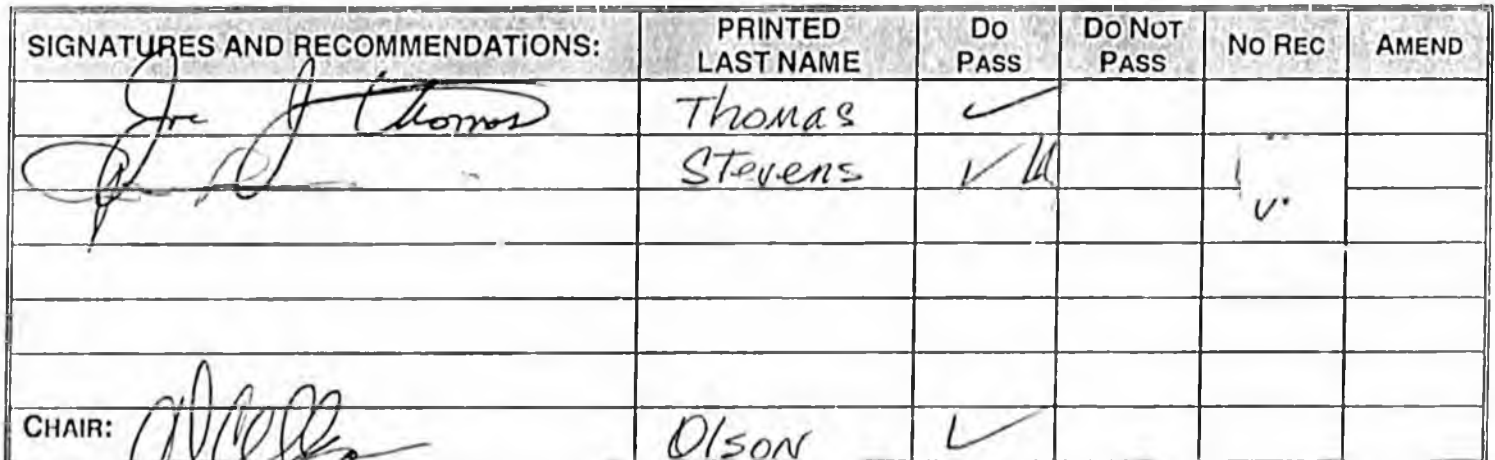 SIGNATURES AND RECOMMENDATIONS: PRINTED LAST NAME DO PASS DO NOT PASS NO REC AMEND
Joe J Thomas Thomas ✓
Stevens ✓
CHAIR: Olson ✓